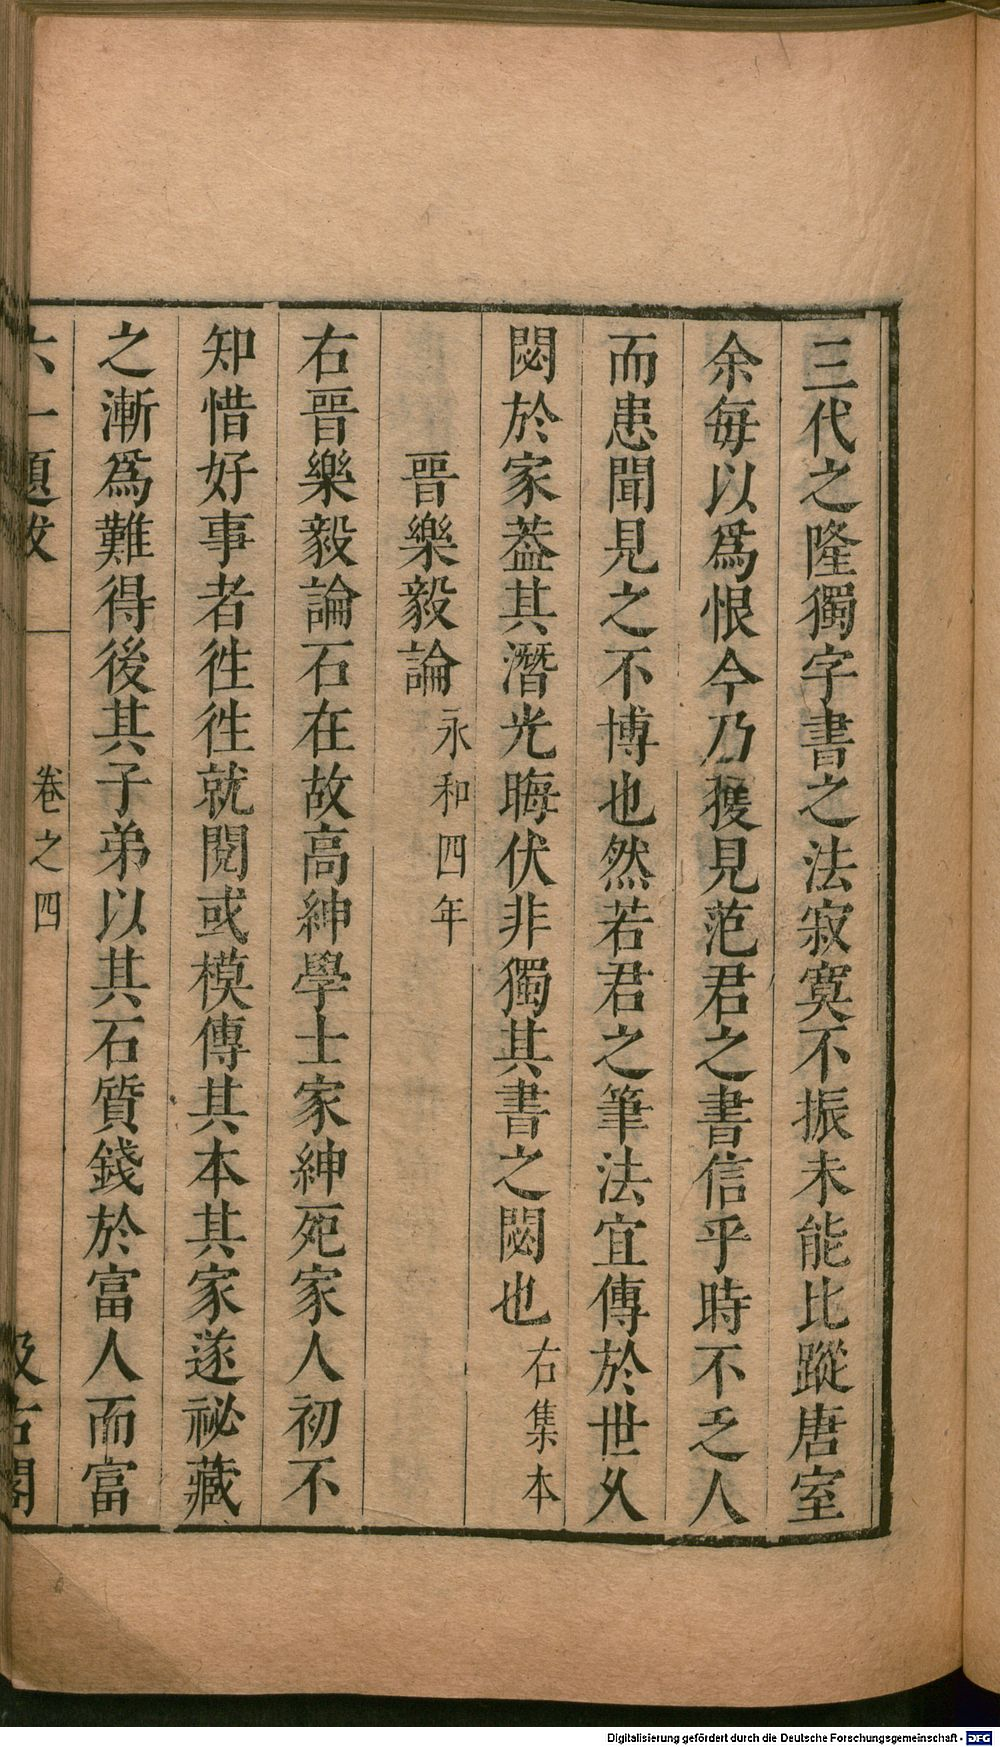 三代之隆獨字書之法寂寞不振未能比蹤唐室
余每以爲恨今乃獲見范君之書信乎時不乏人
而患聞見之不博也然若君之筆法宜傳於世乆
閟於家葢其潛光晦伏非獨其書之閟也右集本
晉樂毅論永和四年
右晉樂毅論石在故高紳學士家紳死家人初不
知惜好事者徃徃就閱或模傳其本其家遂祕藏
之漸爲難得後其子弟以其石質錢於富人而富
六一題跋 卷之四 汲古閣
Digitalisierung gefördert durch die Deutsche Forschungsgemeinschaft - DFG